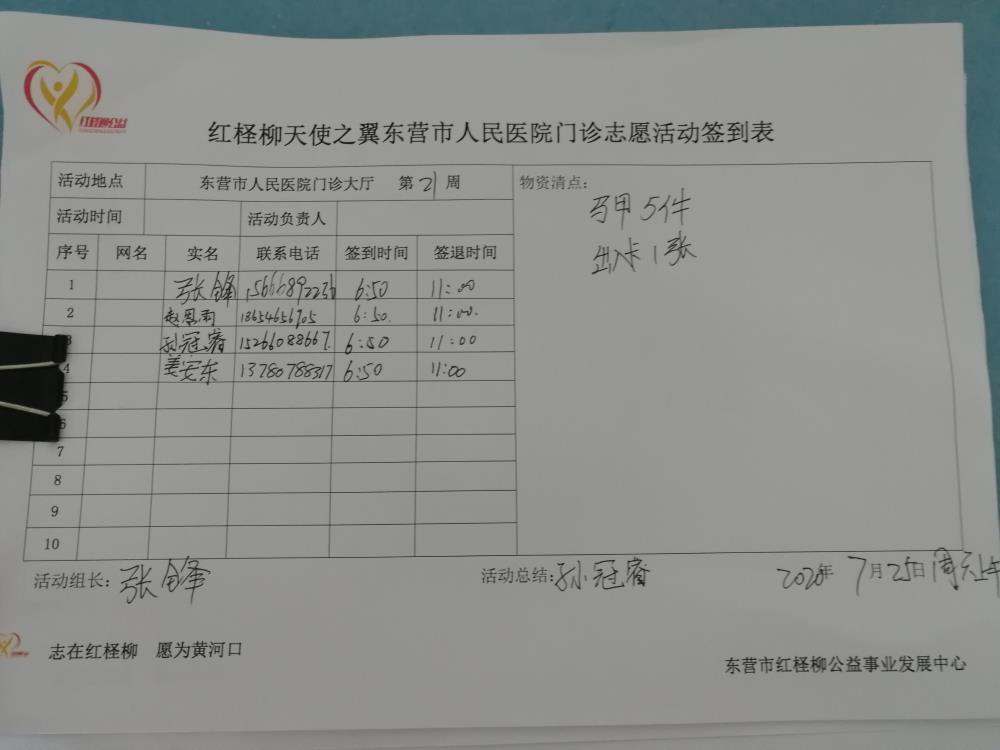 红柽柳公益
红柽柳天使之翼东营市人民医院门诊志愿活动签到表
活动地点 东营市人民医院门诊大厅 第21周
物资清点:
马甲5件
出入卡1张
活动时间 活动负责人
序号 网名 实名 联系电话 签到时间 签退时间
1 张锋 15666892236 6:50 11:00
2 赵恩雨 18654656905 6:50. 11:00.
3 孙冠睿 15266088667. 6:50 11:00
4 姜安东 13780788317 6:50 11:00
5
6
7
8
9
10
活动组长:张锋 活动总结:孙冠睿 2020年7月25日周六上午
志在红柽柳 愿为黄河口
东营市红柽柳公益事业发展中心